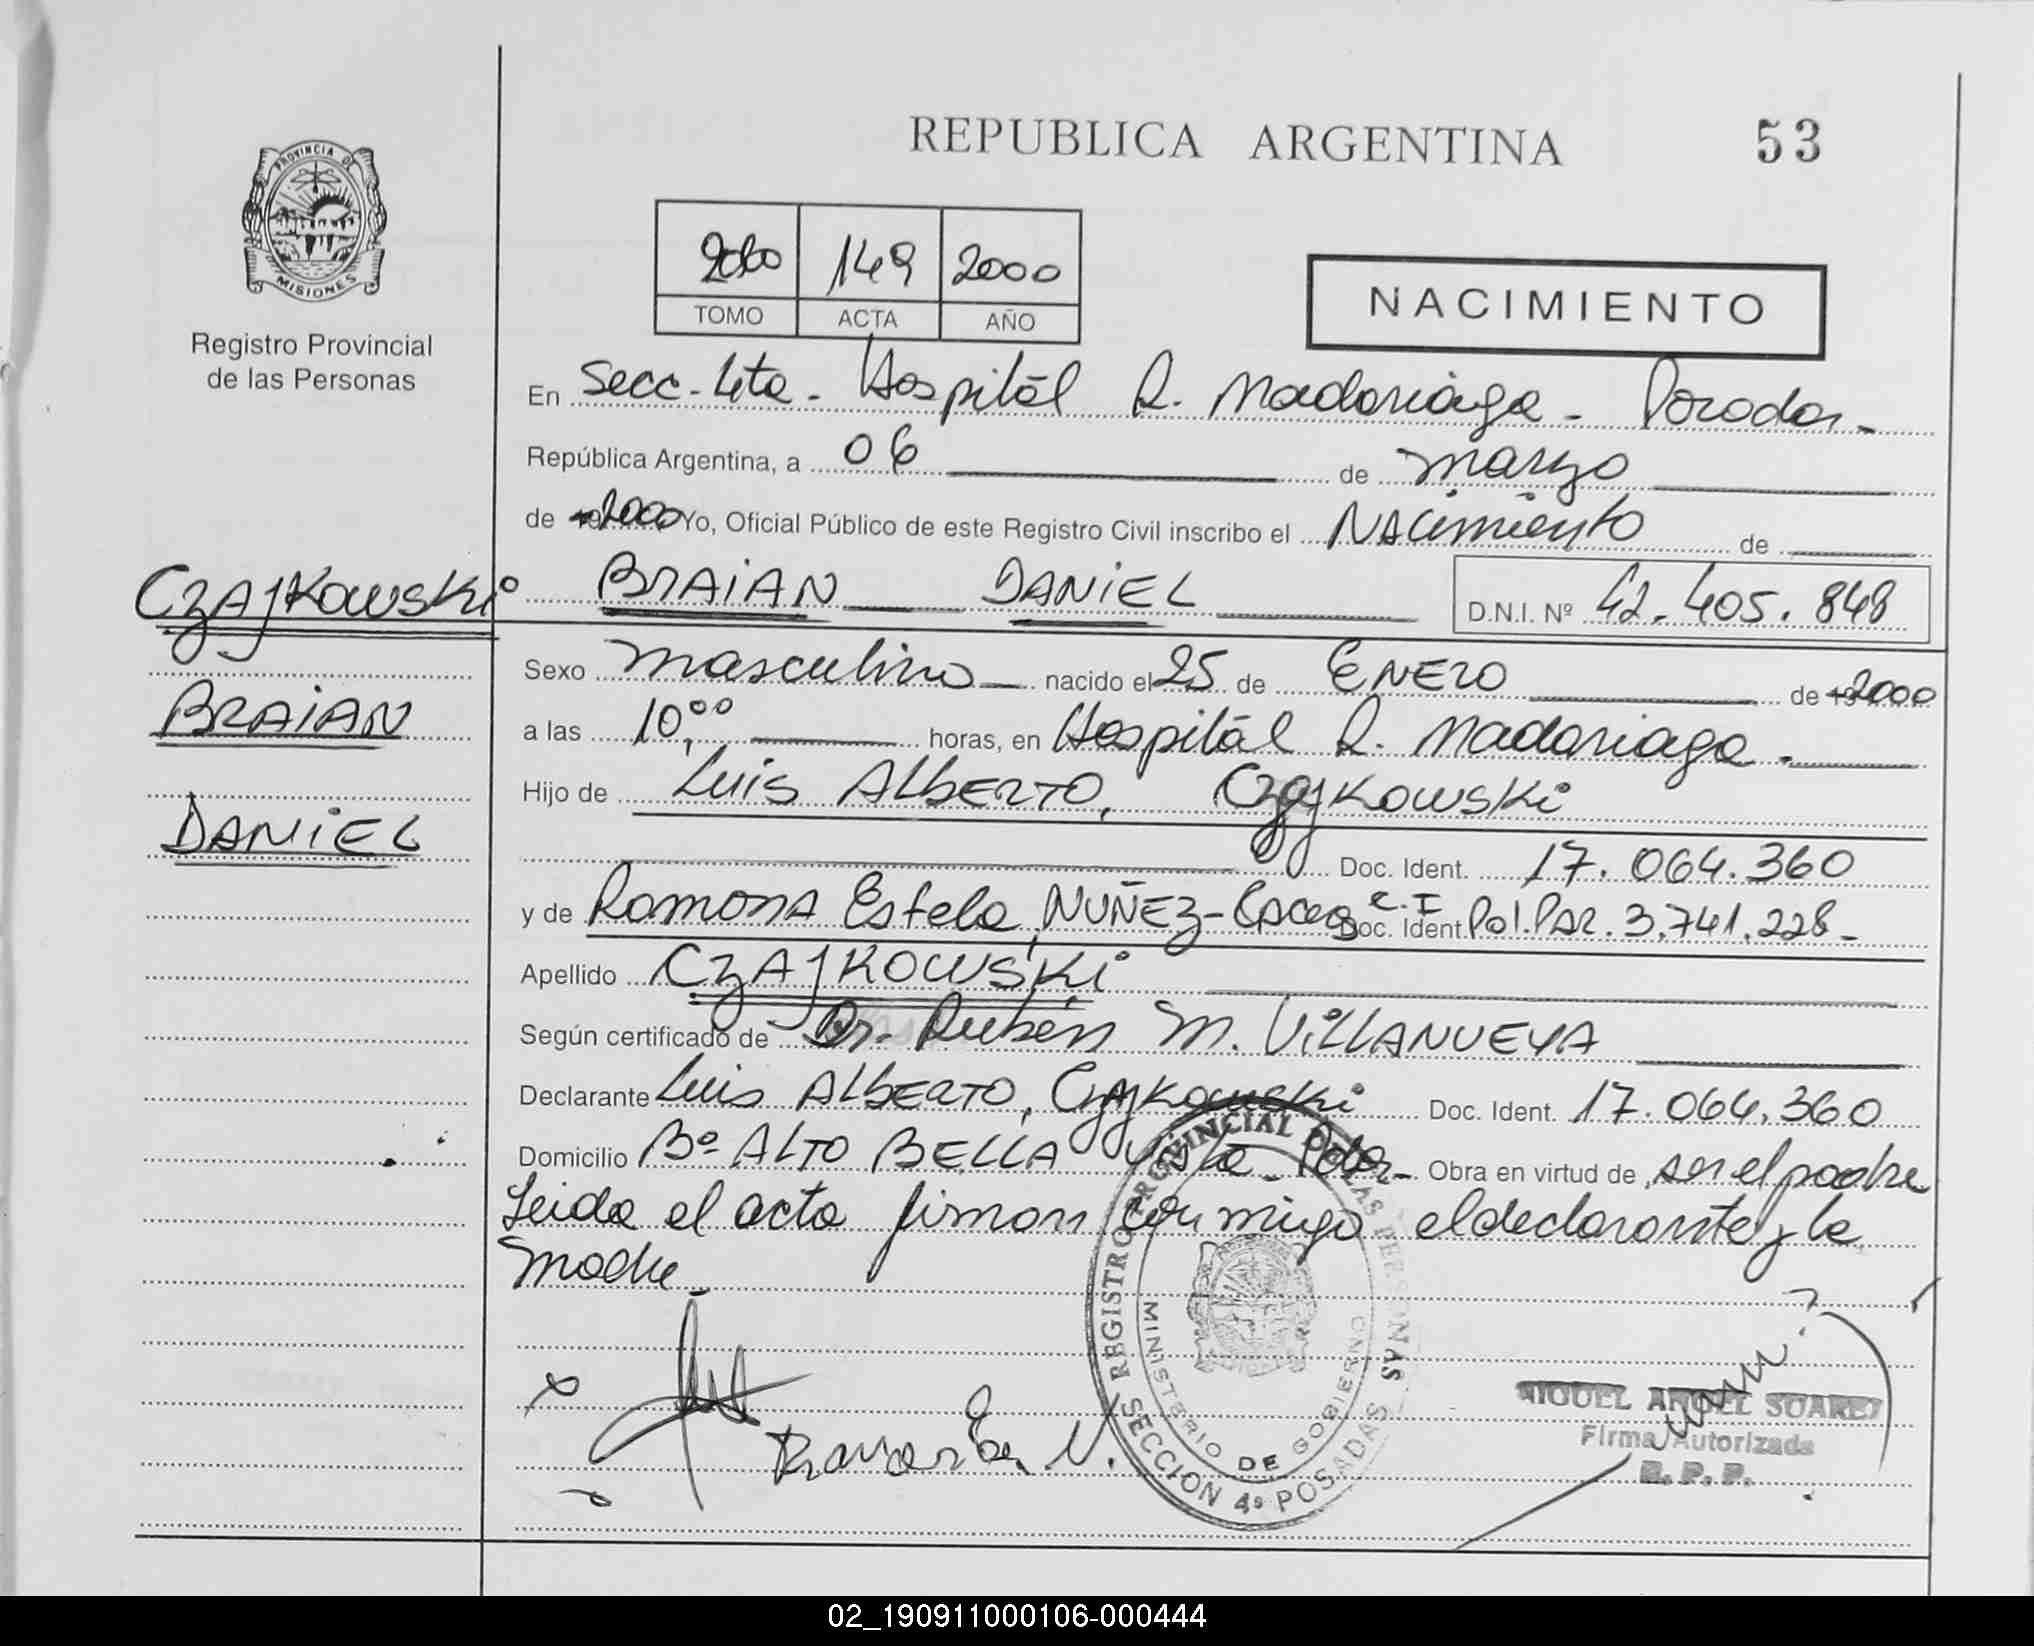 REPUBLICA ARGENTINA
53
PROVINCIA DE
MISIONES
Registro Provincial
de las Personas
2000 149 2000
TOMO ACTA AÑO
NACIMIENTO
En Secc. 4ta. Hospitál R. Madariaga - Posadas -
República Argentina, a 06 de marzo
de 2000 Yo, Oficial Público de este Registro Civil inscribo el NACimiento de
CZAJKOWSKi BRAiAN DANiEL D.N.I. Nº 42.405.848
Sexo masculino nacido el 25 de ENERO de 2000
a las 10,00 horas, en Hospitál R. Madariaga.
BRAiAN
Hijo de Luis ALBERTO, CzajKOWSKi
DANiEL
Doc. Ident. 17.064.360
y de Ramona Estela, NUÑEZ- C.I Doc. Ident. Pol.PAR. 3.741.228-
Apellido CZAJKOWSKi
Según certificado de Dr. Rubén M. ViLLANUEVA
Declarante Luis ALBERTO, CzAjKowski Doc. Ident. 17.064.360
Domicilio Bº ALTO BELLA Vista - Pdas.- Obra en virtud de ser el padre
Leida el acta firman conmigo el declarante y la
madre.
REGISTRO PROVINCIAL DE LAS PERSONAS
MINISTERIO DE GOBIERNO
SECCION 4ª POSADAS
MIGUEL ANGEL SUAREZ
Firma Autorizada
R.P.P.
02_190911000106-000444